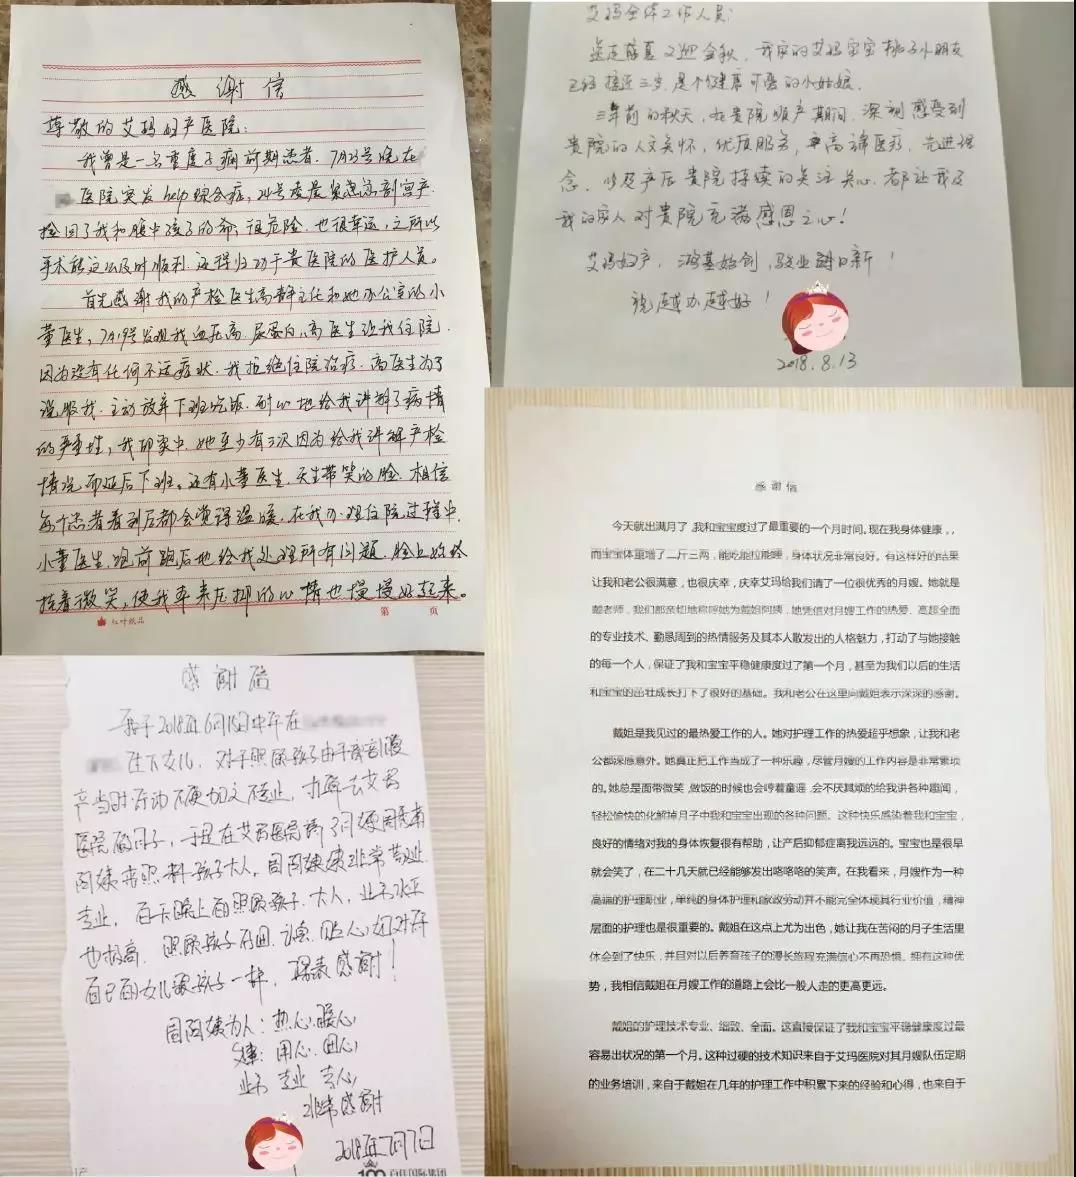 感谢信
尊敬的艾玛妇产医院：
我曾是一名重度子痫前期患者，7月23号晚在
医院突发help综合症，24号凌晨紧急剖宫产
捡回了我和腹中孩子的命，很危险，也很幸运，之所以
手术能这么及时顺利，还得归功于贵医院的医护人员。
首先感谢我的产检医生高静主任和她办公室的小
董医生，7月19号发现我血压高，尿蛋白，高医生让我住院，
因为没有任何不适症状，我拒绝住院治疗，高医生为了
说服我，主动放弃下班吃饭，耐心地给我讲解了病情
的严重性，我印象中，她至少有三次因为给我讲解产检
情况而延后下班。还有小董医生，天生带笑的脸，相信
每个患者看到后都会觉得温暖，在我办理住院过程中，
小董医生跑前跑后地给我处理所有问题，脸上始终
挂着微笑，使我本来压抑的心情也慢慢好起来。
第 页
红叶纸品
艾玛全体工作人员：
送走盛夏又迎金秋，我家的艾玛宝宝桃子小朋友
已经接近三岁，是个健康可爱的小姑娘。
三年前的秋天，在贵院顺产期间，深刻感受到
贵院的人文关怀，优质服务，高端医疗，先进理
念，以及产后贵院持续的关注关心，都让我及
我的家人对贵院充满感恩之心！
艾玛妇产，鸿基始创，骏业日新！
祝越办越好！
2018.8.13
感谢信
我于2018年6月15日中午在
生下女儿，对于照顾孩子由于剖腹
产当时行动不便
医院坐月子，于是在艾玛医院请了月嫂周
阿姨来照料孩子大人，周阿姨非常敬业
专业，白天晚上的照顾孩子、大人，业务水平
也极高，照顾孩子用心，认真，贴心，如对待
自己的女儿跟孩子一样，深表感谢！
周阿姨为人：热心，暖心，
用心、细心，
业务 专业 专心，
非常感谢
2018年7月7日
100 百佳国际集团
感谢信
今天就出满月了，我和宝宝度过了最重要的一个月时间。现在我身体健康，，
而宝宝体重增了二斤三两，能吃能拉能睡，身体状况非常良好。有这样好的结果
让我和老公很满意，也很庆幸，庆幸艾玛给我们请了一位很优秀的月嫂。她就是
戴老师，我们都亲切地称呼她为戴姐阿姨，她凭借对月嫂工作的热爱、高超全面
的专业技术、勤恳周到的热情服务及其本人散发出的人格魅力，打动了与她接触
的每一个人，保证了我和宝宝平稳健康度过了第一个月，甚至为我们以后的生活
和宝宝的茁壮成长打下了很好的基础。我和老公在这里向戴姐表示深深的感谢。
戴姐是我见过的最热爱工作的人。她对护理工作的热爱超乎想象，让我和老
公都深感意外。她真正把工作当成了一种乐趣，尽管月嫂的工作内容是非常繁琐
的。她总是面带微笑，做饭的时候也会哼着童谣，会不厌其烦的给我讲各种趣闻，
轻松愉快的化解掉月子中我和宝宝出现的各种问题。这种快乐感染着我和宝宝，
良好的情绪对我的身体恢复很有帮助，让产后抑郁症离我远远的。宝宝也是很早
就会笑了，在二十几天就已经能够发出咯咯咯的笑声。在我看来，月嫂作为一种
高端的护理职业，单纯的身体护理和家政劳动并不能完全体现其行业价值，精神
层面的护理也是很重要的。戴姐在这点上尤为出色，她让我在苦闷的月子生活里
体会到了快乐，并且对以后养育孩子的漫长旅程充满信心不再恐惧。拥有这种优
势，我相信戴姐在月嫂工作的道路上会比一般人走的更高更远。
戴姐的护理技术专业、细致、全面。这直接保证了我和宝宝平稳健康度过最
容易出状况的第一个月。这种过硬的技术知识来自于艾玛医院对其月嫂队伍定期
的业务培训，来自于戴姐在几年的护理工作中积累下来的经验和心得，也来自于